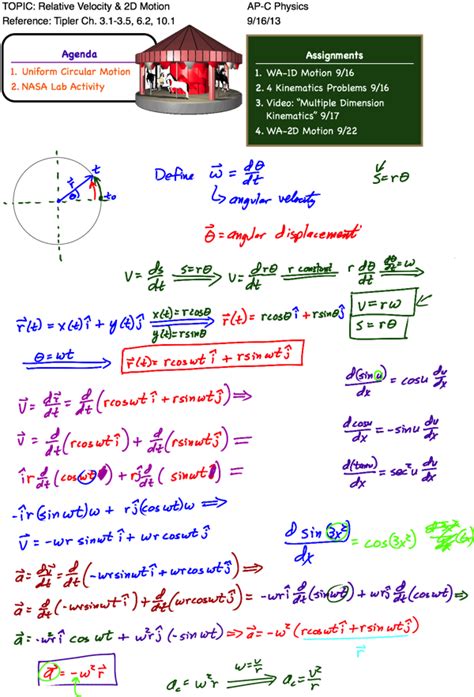 TOPIC: Relative Velocity & 2D Motion
Reference: Tipler Ch. 3.1-3.5, 6.2, 10.1
AP-C Physics
9/16/13
Agenda
1. Uniform Circular Motion
2. NASA Lab Activity
Assignments
1. WA-1D Motion 9/16
2. 4 Kinematics Problems 9/16
3. Video: "Multiple Dimension
Kinematics" 9/17
4. WA-2D Motion 9/22
r⃗ θ t t₀
Define ω⃗ = dθ⃗/dt
↳ angular velocity
S = rθ
θ⃗ = angular displacement
v = ds/dt ⟹ (s=rθ) v = drθ/dt ⟹ (r constant) r dθ/dt ⟹ (dθ/dt = ω)
v = rω
s = rθ
r⃗(t) = x(t)î + y(t)ĵ ⟹ (x(t)=rcosθ, y(t)=rsinθ) r⃗(t) = rcosθî + rsinθĵ
θ = ωt ⟹ r⃗(t) = rcosωtî + rsinωtĵ
v⃗ = dr⃗/dt = d/dt(rcosωtî + rsinωtĵ) ⟹
d(sinu)/dx = cosu du/dx
v⃗ = d/dt(rcosωtî) + d/dt(rsinωtĵ) =
dcosu/dx = -sinu du/dx
îr d/dt(cosωt) + rĵ d/dt(sinωt) =
d(tanu)/dx = sec²u du/dx
-îr(sinωt)ω + rĵ(cosωt)ω ⟹
v⃗ = -ωr sinωtî + ωr cosωtĵ
d sin(3x²)/dx = cos(3x²) (6x)
a⃗ = dv⃗/dt = d/dt(-ωrsinωtî + ωrcosωtĵ) ⟹
a⃗ = d/dt(-ωrsinωtî) + d/dt(ωrcosωtĵ) = -ωrî d/dt(sinωt) + ωrĵ d/dt(cosωt) ⟹
a⃗ = -ω²rî cosωt + ω²rĵ(-sinωt) ⟹ a⃗ = -ω²(rcosωtî + rsinωtĵ)
r⃗
a⃗ = -ω²r⃗
a_c = ω²r ⟹ (ω = v/r) a_c = v²/r